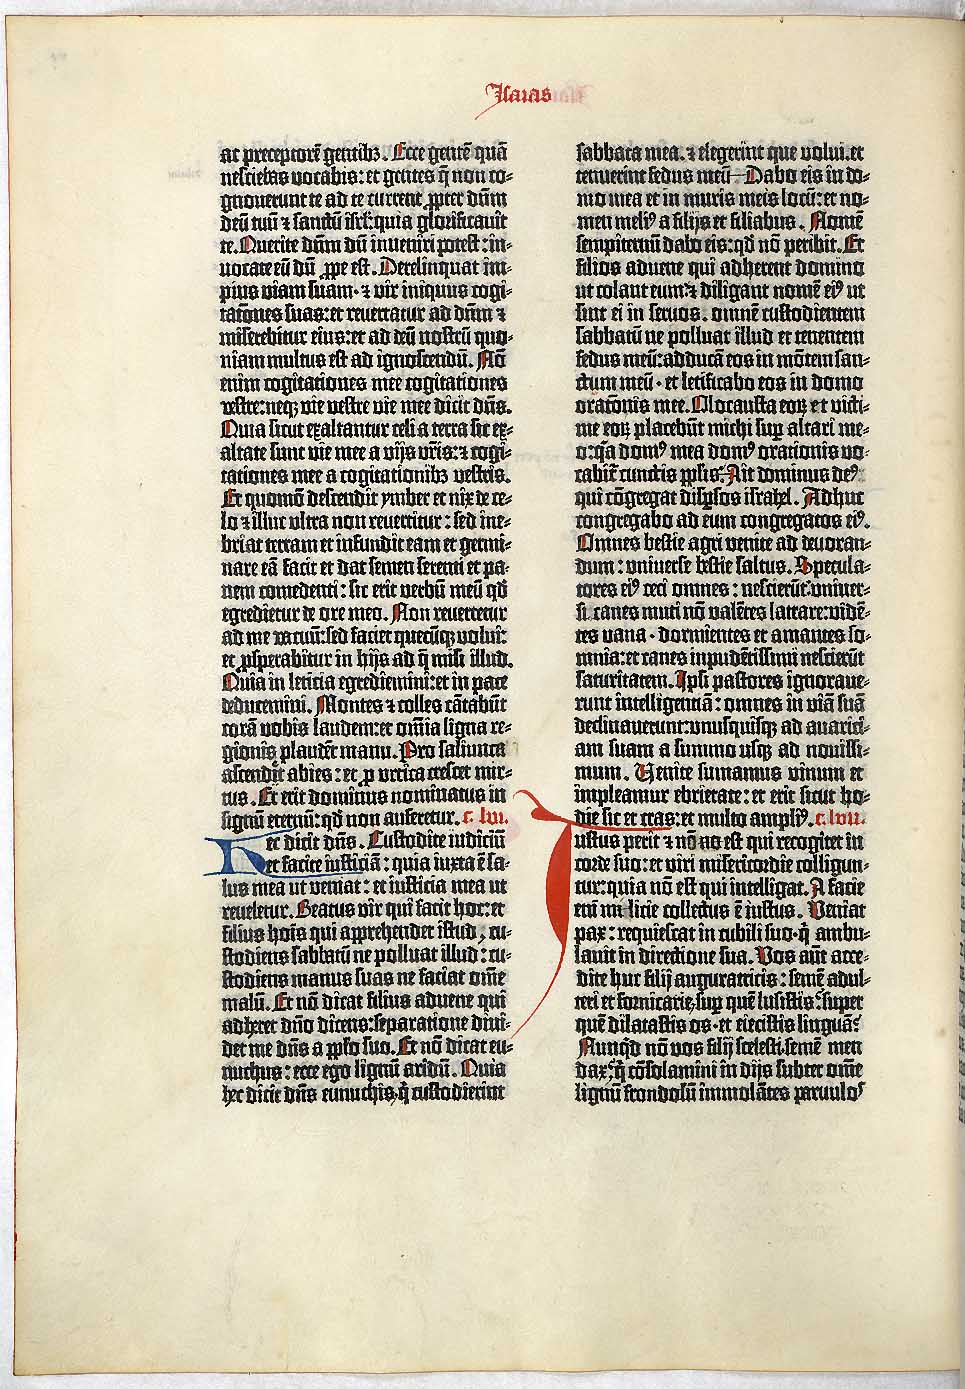 Isaias
ac preceptorē gentibꝫ. Ecce gentē quā
nesciebas vocabis: et gentes q̄ non co-
gnouerunt te ad te current ꝓpter dn̄m
deū tuū ⁊ sanctū isrl̄: quia glorificauit
te. Querite dn̄m dū inueniri potest: in-
uocate eū dū ꝓpe est. Derelinquat im-
pius viam suam· ⁊ vir iniquus cogi-
tatōnes suas: et reuertatur ad dn̄m ⁊
miserebitur eius: et ad deū nostrū quo-
niam multus est ad ignoscendū. Nō
enim cogitationes mee cogitationes
vestre: neqꝫ vie vestre vie mee dicit dn̄s.
Quia sicut exaltantur celi a terra sic ex-
altate sunt vie mee a vijs vr̄is: ⁊ cogi-
tationes mee a cogitationibꝫ vestris.
Et quomō descendit ymber et nix de ce-
lo ⁊ illuc vltra non reuertitur: sed ine-
briat terram et infundit eam et germi-
nare eā facit et dat semen serenti et pa-
nem comedenti: sic erit verbū meū qd̄
egredietur de ore meo. Non reuertetur
ad me vacuū: sed faciet quecūqꝫ volui:
et ꝓsperabitur in hijs ad q̄ misi illud.
Quia in leticia egrediemini: et in pace
deducemini. Montes ⁊ colles cātabūt
corā vobis laudem: et om̄ia ligna re-
gionis plaudēt manu. Pro saliunca
ascendit abies: et ꝓ vrtica crescet mir-
tus. Et erit dominus nominatus in
signū eternū: qd̄ non auferetur. c. lvi.
Hec dicit dn̄s. Custodite iudiciū
et facite iusticiā: quia iuxta ē sa-
lus mea ut veniat: et iusticia mea ut
reueletur. Beatus vir qui facit hoc: et
filius hoīs qui apprehendet istud, cu-
stodiens sabbatū ne polluat illud: cu-
stodiens manus suas ne faciat om̄e
malū. Et nō dicat filius aduene qui
adheret dn̄o dicens: separatione diui-
det me dn̄s a pp̄lo suo. Et nō dicat eu-
nuchus: ecce ego lignū aridū. Quia
hec dicit dn̄s eunuchis, q̄ custodierint
sabbata mea. ⁊ elegerint que volui. et
tenuerint fedus meū. Dabo eis in do-
mo mea et in muris meis locū: et no-
men meliꝰ a filijs et filiabus. Nomē
sempiternū dabo eis: qd̄ nō peribit. Et
filios aduene qui adherent domino
ut colant eum: ⁊ diligant nomē eiꝰ ut
sint ei in seruos. omnē custodientem
sabbatū ne polluat illud et tenentem
fedus meū: adducā eos in mōtem san-
ctum meū· et letificabo eos in domo
oratōnis mee. Olocausta eoꝝ et victi-
me eoꝝ placebūt michi suꝑ altari me-
o: q̄a domꝰ mea domꝰ orationis vo-
cabit̄ cunctis pp̄lis. Ait dominus deꝰ:
qui cōgregat disꝑsos israhel. Adhuc
congregabo ad eum congregatos eiꝰ.
Omnes bestie agri venite ad deuoran-
dum: vniuerse bestie saltus. Specula-
tores eiꝰ ceci omnes: nescierūt: vniuer-
si. canes muti nō valētes latrare: vidē-
tes vana· dormientes et amantes so-
mnia: et canes inpudētissimi nescierūt
saturitatem. Ipsi pastores ignoraue-
runt intelligentiā: omnes in viā suā
declinauerunt: vnusquisqꝫ ad auarici-
am suam a summo usqꝫ ad nouissi-
mum. Venite sumamus vinum et
impleamur ebrietate: et erit sicut ho-
die sic et cras: et multo ampliꝰ. c. lvii.
Iustus perit ⁊ non est qui recogitet in
corde suo: et viri misericordie colligun-
tur: quia nō est qui intelligat. A facie
enī malicie collectus ē iustus. Veniat
pax: requiescat in cubili suo· q̄ ambu-
lauit in directione sua. Vos aūt acce-
dite huc filij auguratricis: semē adul-
teri et fornicarie, suꝑ quē lusistis: super
quē dilatastis os· et eiecistis linguā:
Nunqd̄ nō vos filij scelesti. semē men
dax: q̄ cōsolamini in dijs subter om̄e
lignū frondosū immolātes paruulos